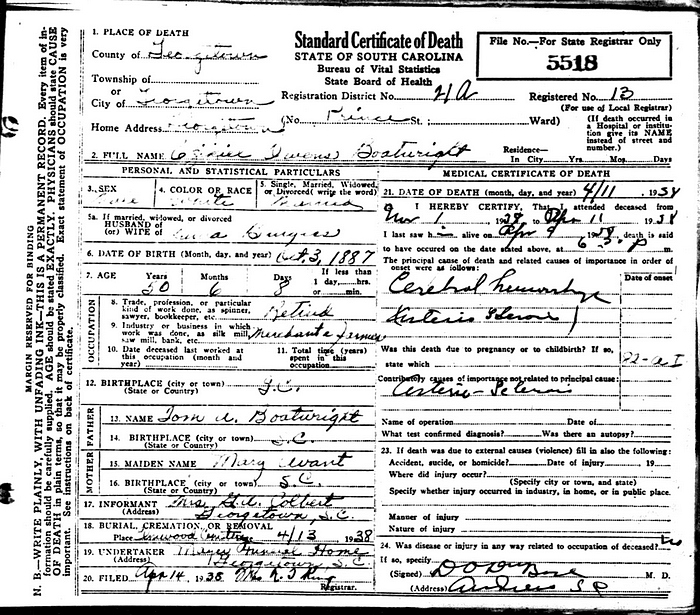 MARGIN RESERVED FOR BINDING
N. B.—WRITE PLAINLY, WITH UNFADING INK—THIS IS A PERMANENT RECORD. Every item of in-
formation should be carefully supplied. AGE should be stated EXACTLY. PHYSICIANS should state CAUSE
OF DEATH in plain terms, so that it may be properly classified. Exact statement of OCCUPATION is very
important. See instructions on back of certificate.
1. PLACE OF DEATH
County of Georgetown
Township of
or
City of Georgetown
Home Address Georgetown
Standard Certificate of Death
STATE OF SOUTH CAROLINA
Bureau of Vital Statistics
State Board of Health
File No.—For State Registrar Only
5518
Registration District No. 21A Registered No. 13
(For use of Local Registrar)
(No. Prince St.; Ward)
(If death occurred in
a Hospital or institu-
tion give its NAME
instead of street and
number.)
2. FULL NAME Owens Boatwright
Residence—
In City Yrs. Mos. Days
PERSONAL AND STATISTICAL PARTICULARS
3. SEX Male
4. COLOR OR RACE White
5. Single, Married, Widowed,
or Divorced (write the word)
Married
5a. If married, widowed, or divorced
HUSBAND of
(or) WIFE of Burgess
6. DATE OF BIRTH (Month, day, and year) Oct. 3, 1887
7. AGE Years Months Days If less than
1 day, hrs.
50 6 8 or min.
OCCUPATION
8. Trade, profession, or particular
kind of work done, as spinner,
sawyer, bookkeeper, etc. Retired
9. Industry or business in which
work was done, as silk mill,
saw mill, bank, etc. Merchant & Farmer
10. Date deceased last worked at
this occupation (month and
year)
11. Total time (years)
spent in this
occupation
12. BIRTHPLACE (city or town) S.C.
(State or Country)
FATHER
13. NAME Tom A. Boatwright
14. BIRTHPLACE (city or town) S.C.
(State or Country)
MOTHER
15. MAIDEN NAME Mary Avant
16. BIRTHPLACE (city or town) S.C
(State or Country)
17. INFORMANT Mrs. Colbert
(Address) Georgetown, S.C.
18. BURIAL, CREMATION, OR REMOVAL
Place Elmwood Cemetery 4/13 1938
19. UNDERTAKER Mayer Funeral Home
(Address) Georgetown, S.C.
20. FILED Apr 14 1938 Mrs King
Registrar.
MEDICAL CERTIFICATE OF DEATH
21. DATE OF DEATH (month, day, and year) 4/11 1938
22. I HEREBY CERTIFY, That I attended deceased from
1 1938 to Apr 11 1938
I last saw him alive on Apr 9 1938 death is said
to have occured on the date stated above, at 6 P m.
The principal cause of death and related causes of importance in order of
onset were as follows:
Date of onset
Cerebral hemorrhage
Arterio Sclerosis
Was this death due to pregnancy or to childbirth? If so,
state which
Contributory causes of importance not related to principal cause:
Arterio-Sclerosis
Name of operation Date of
What test confirmed diagnosis? Was there an autopsy?
23. If death was due to external causes (violence) fill in also the following:
Accident, suicide, or homicide? Date of injury 19
Where did injury occur?
(Specify city or town, and state)
Specify whether injury occurred in industry, in home, or in public place.
Manner of injury
Nature of injury
24. Was disease or injury in any way related to occupation of deceased? No
If so, specify
(Signed) M. D.
(Address) Andrews S C